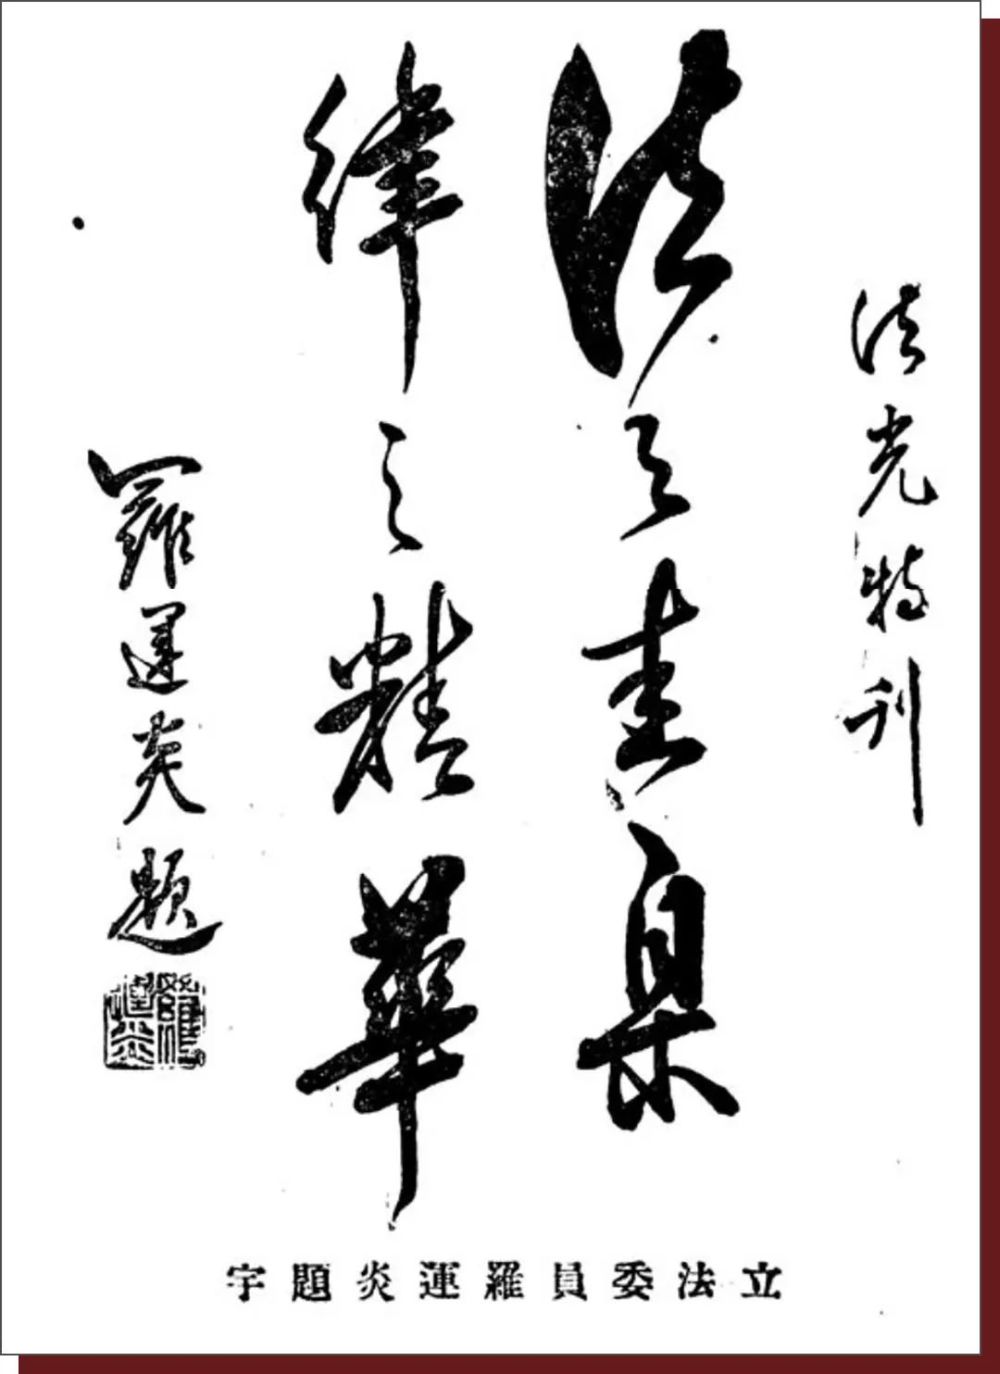 法光特刊
法之圭臬
律之精華
羅運炎題
羅運炎
立法委員羅運炎題字